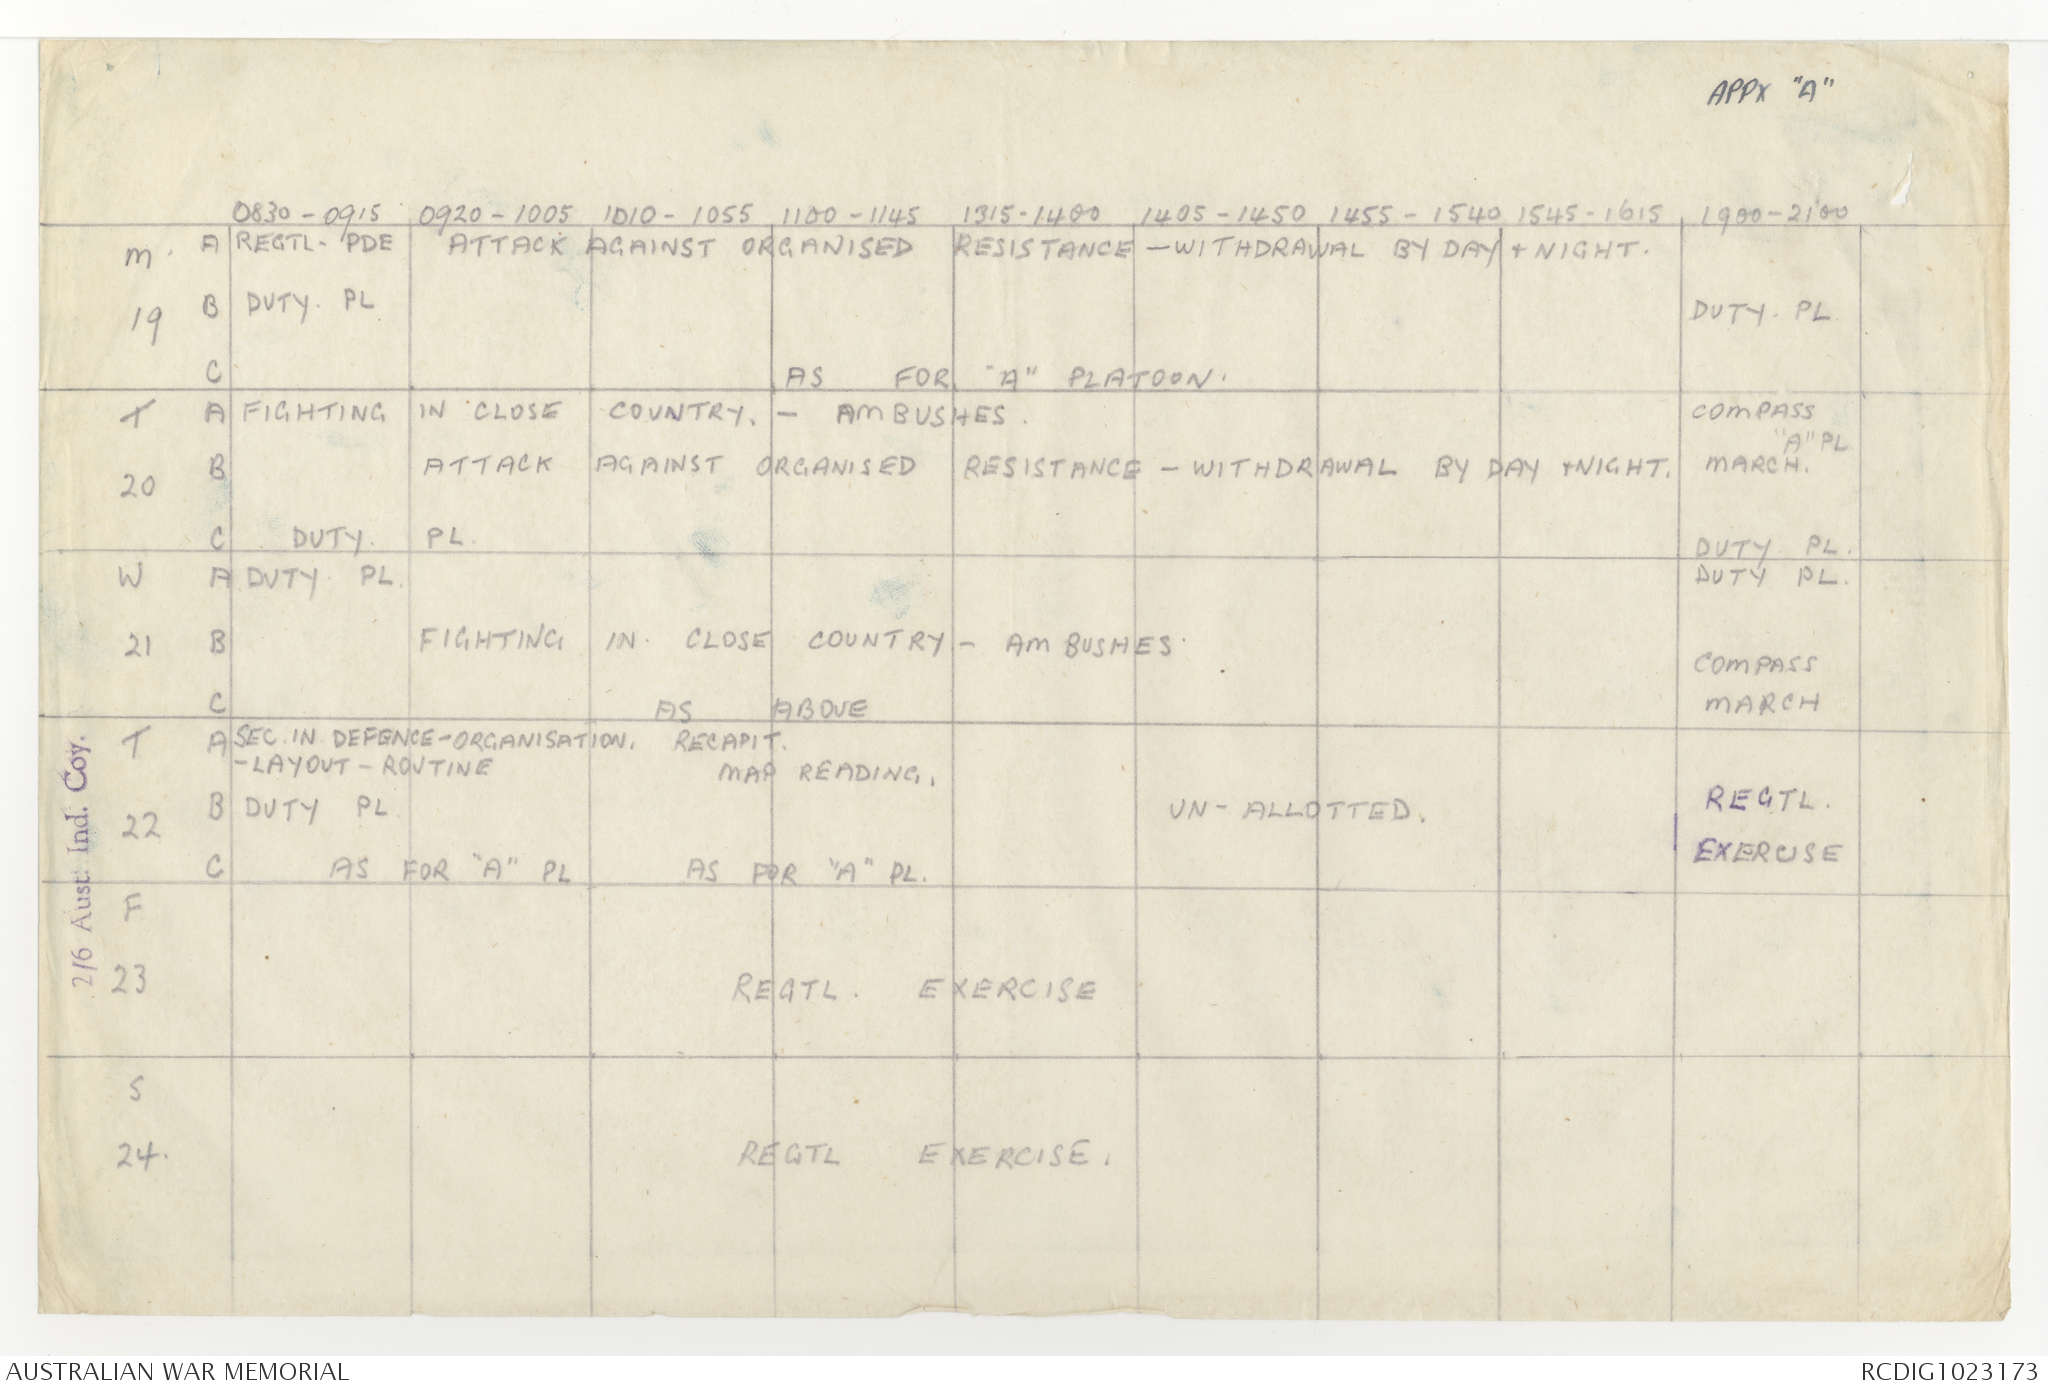 APPX "A"
0830-0915 0920-1005 1010-1055 1100-1145 1315-1400 1405-1450 1455-1540 1545-1615 1900-2100
M. A REGTL- PDE ATTACK AGAINST ORGANISED RESISTANCE - WITHDRAWAL BY DAY + NIGHT.
19 B DUTY. PL DUTY. PL
C AS FOR "A" PLATOON.
T A FIGHTING IN CLOSE COUNTRY. - AMBUSHES. COMPASS
"A" PL
20 B ATTACK AGAINST ORGANISED RESISTANCE - WITHDRAWAL BY DAY + NIGHT. MARCH.
C DUTY. PL. DUTY PL.
W A DUTY PL. DUTY PL.
21 B FIGHTING IN CLOSE COUNTRY - AMBUSHES COMPASS
C AS ABOVE MARCH
T A SEC. IN DEFENCE - ORGANISATION. RECAPIT.
- LAYOUT - ROUTINE MAP READING.
22 B DUTY PL UN-ALLOTTED. REGTL.
C AS FOR "A" PL AS FOR "A" PL. EXERCISE
F
23 REGTL. EXERCISE
S
24. REGTL EXERCISE.
2/6 Aust. Ind. Coy.
AUSTRALIAN WAR MEMORIAL RCDIG1023173